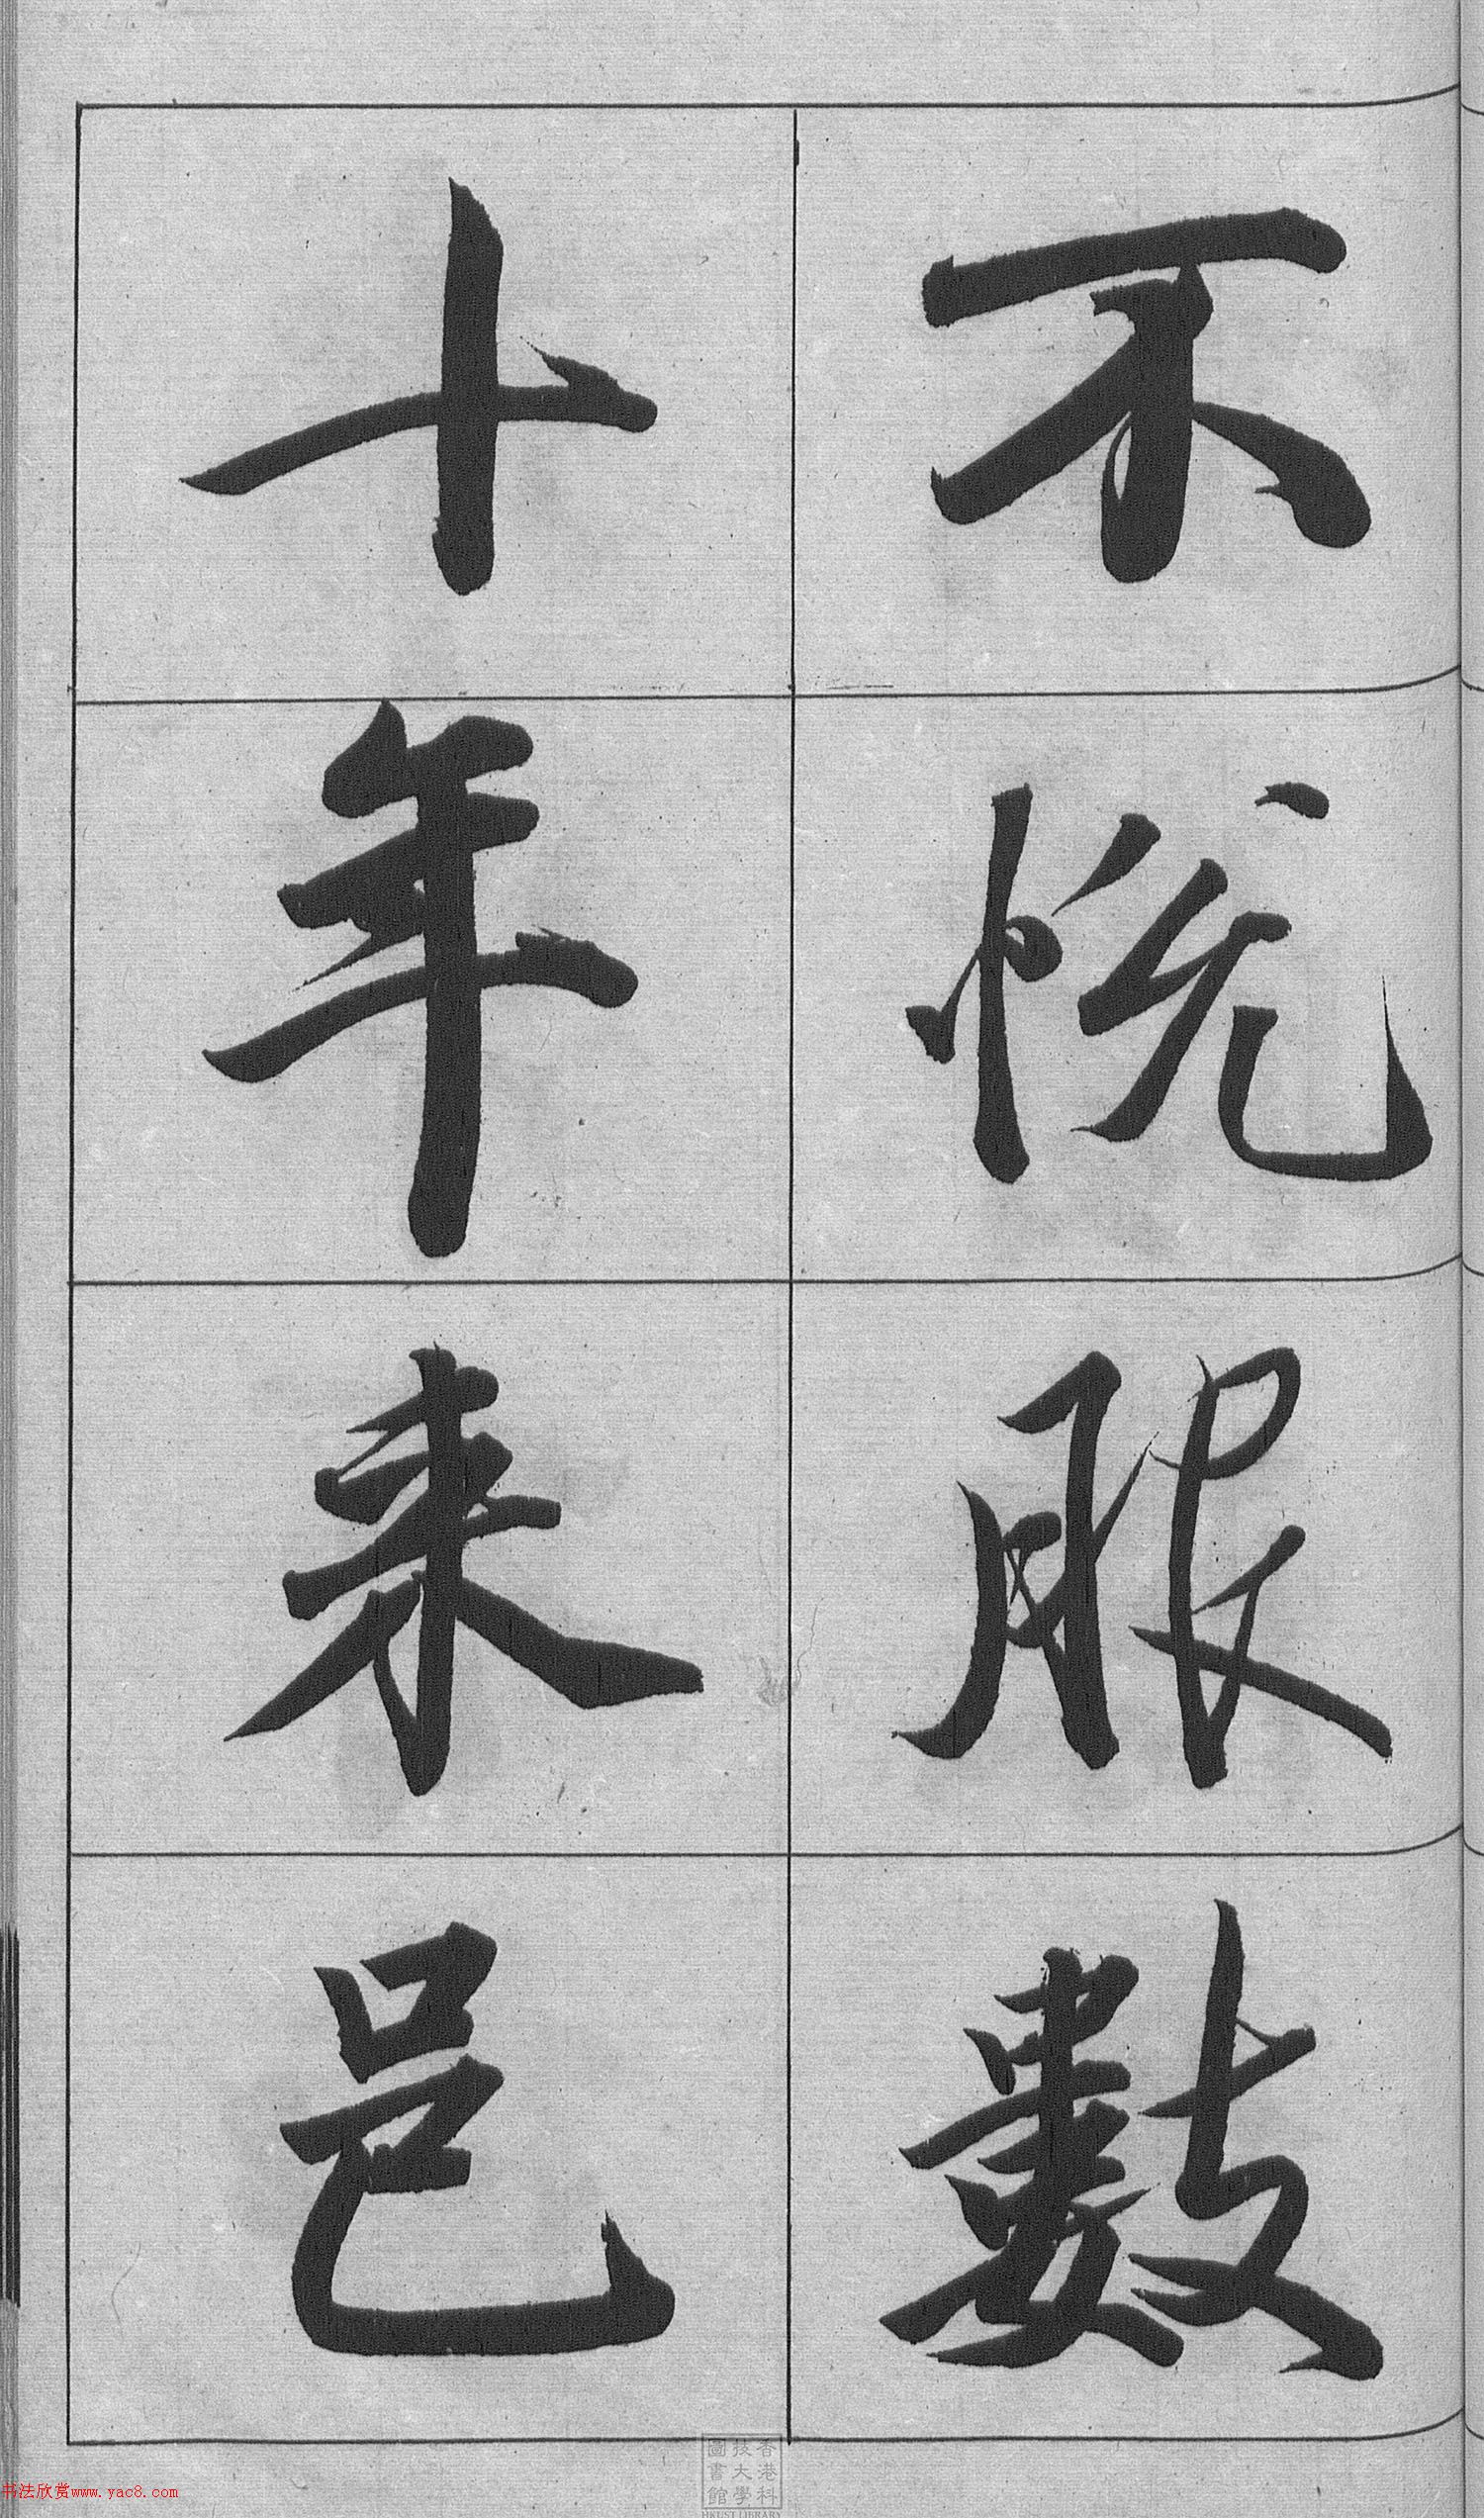 不悅服數
十年来邑
香港科
技大學
圖書館
HKUST LIBRARY
书法欣赏www.yac8.com